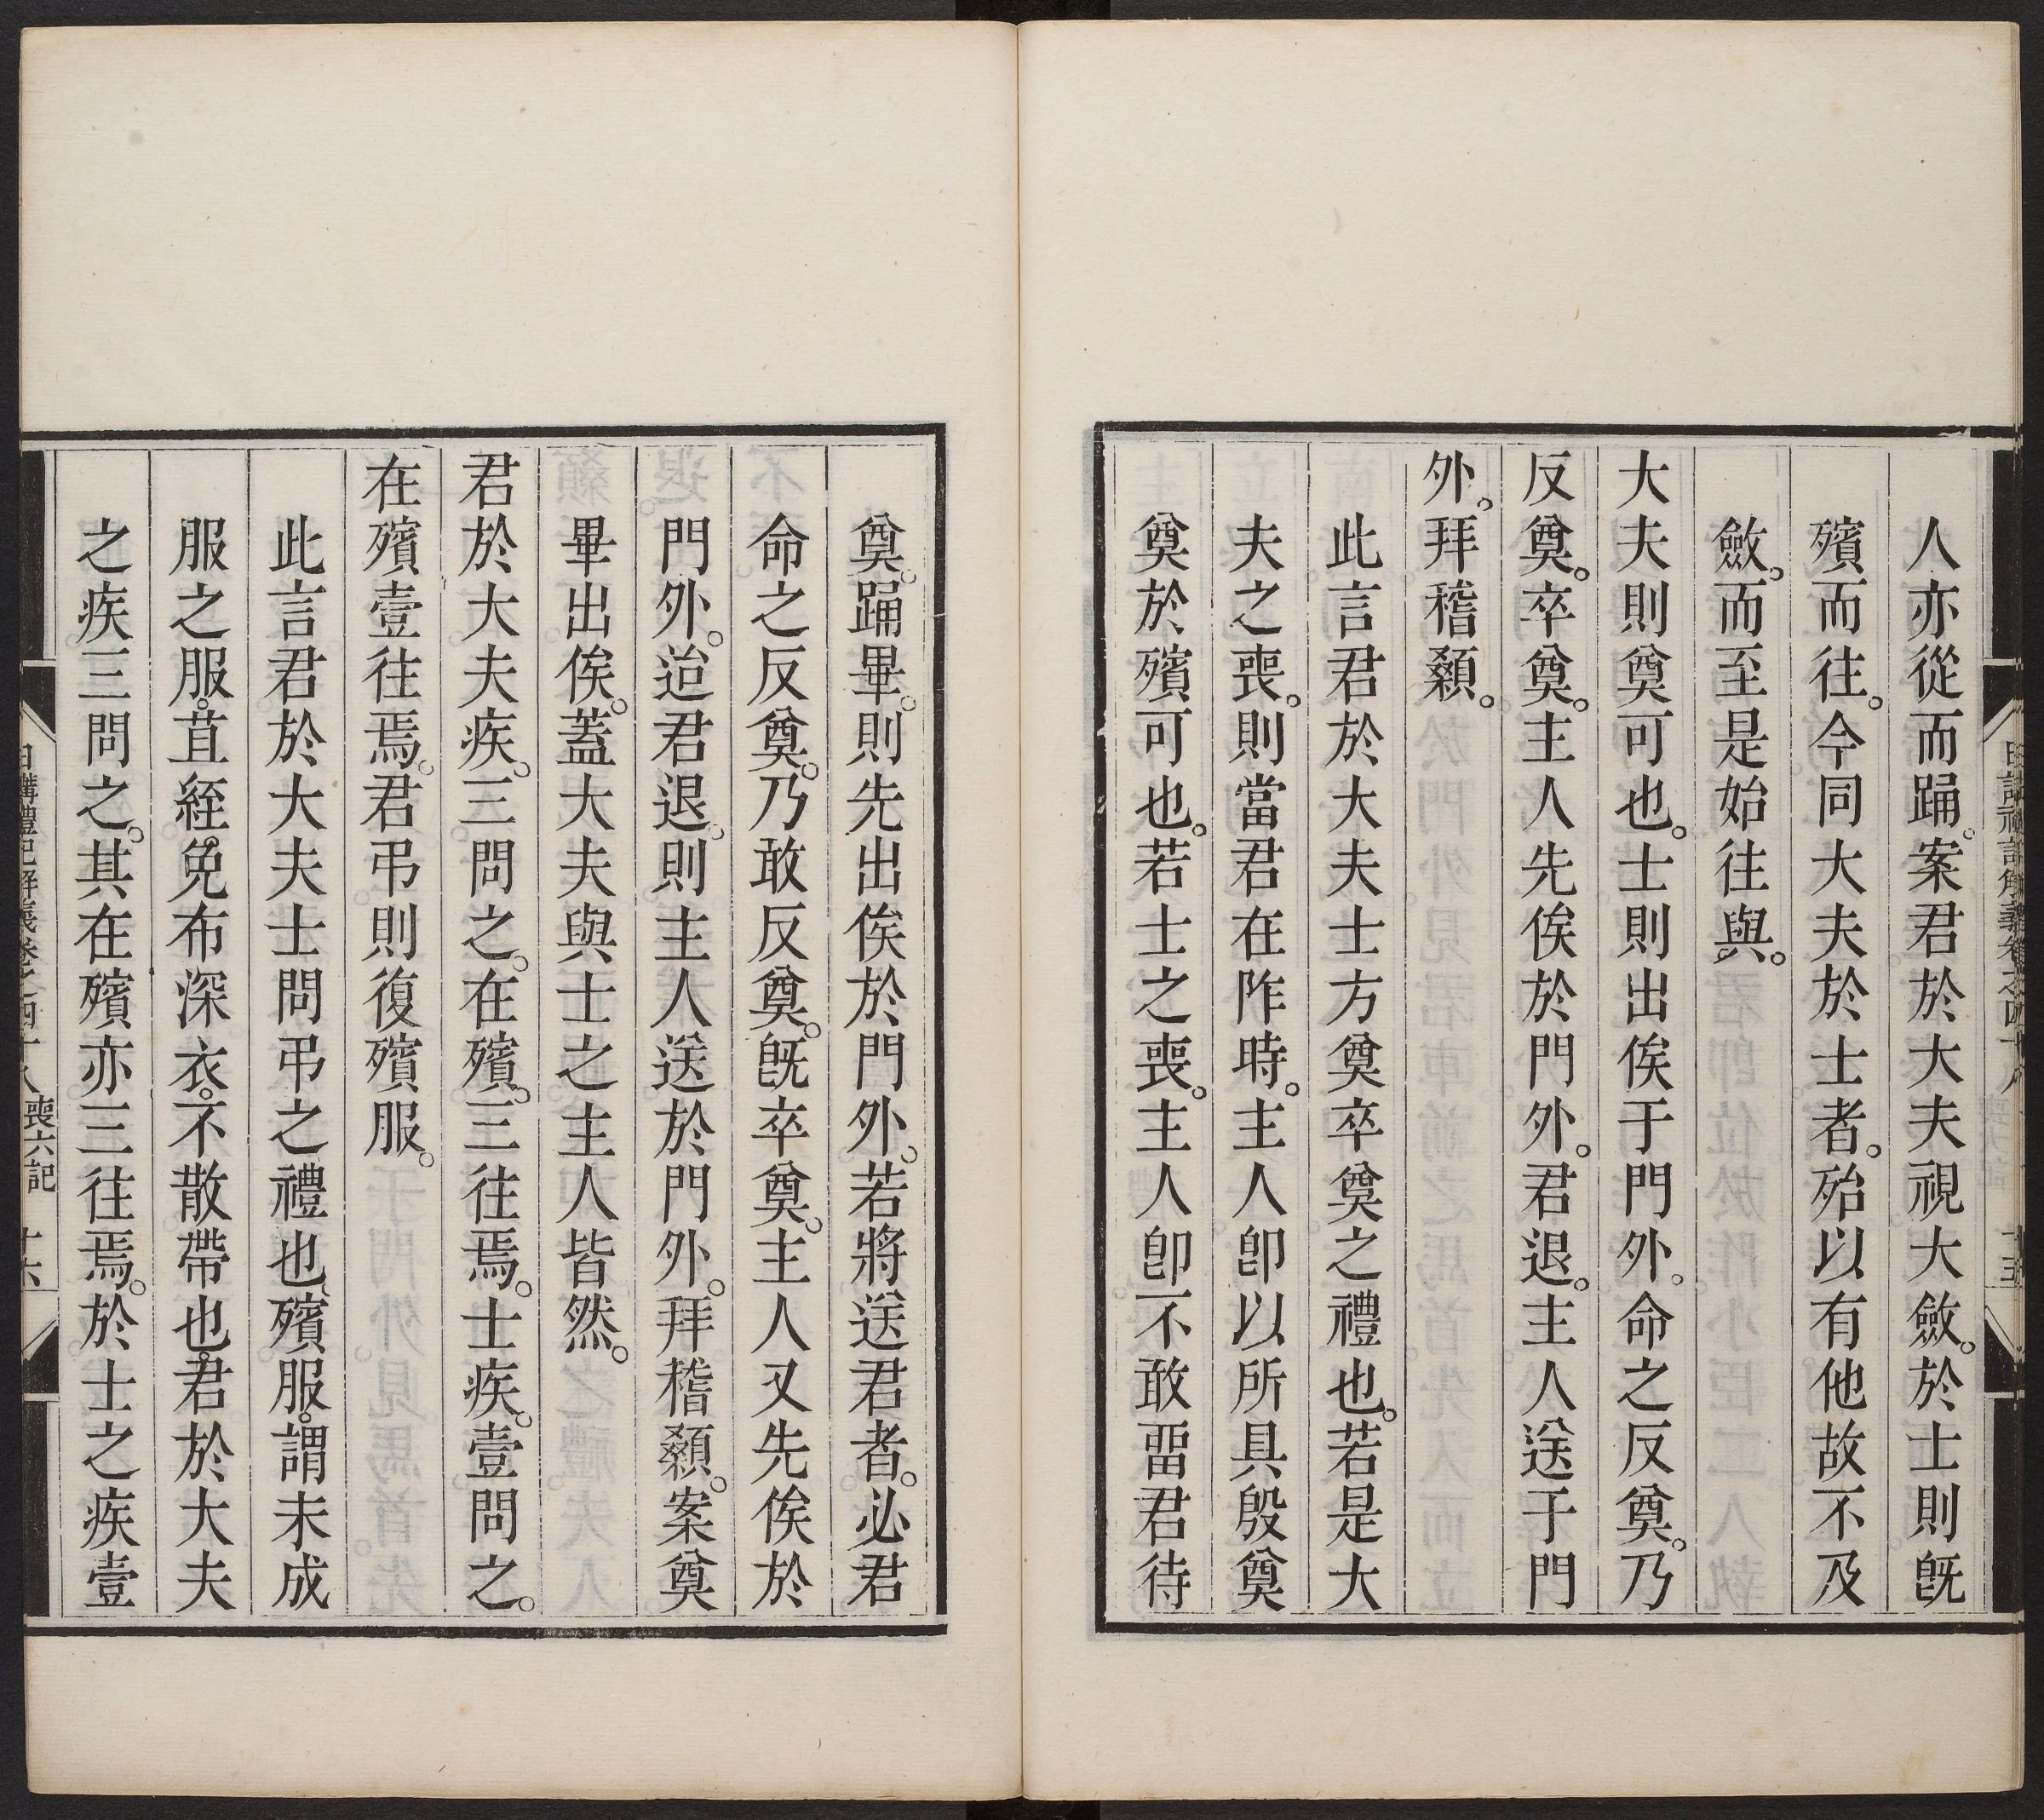 人亦從而踊。案君於大夫視大斂。於士則旣
殯而往。今同大夫於士者。殆以有他故不及
斂。而至是始往與。
大夫則奠可也。士則出俟于門外。命之反奠。乃
反奠。卒奠。主人先俟於門外。君退。主人送于門
外。拜稽顙。
此言君於大夫士方奠卒奠之禮也。若是大
夫之喪。則當君在阼時。主人卽以所具殷奠
奠於殯可也。若士之喪。主人卽不敢畱君待
奠。踊畢。則先出俟於門外。若將送君者。必君
命之反奠。乃敢反奠。旣卒奠。主人又先俟於
門外。迨君退。則主人送於門外。拜稽顙。案奠
畢出俟。蓋大夫與士之主人皆然。
君於大夫疾。三問之。在殯。三往焉。士疾。壹問之。
在殯壹往焉。君弔則復殯服。
此言君於大夫士問弔之禮也。殯服。謂未成
服之服。苴絰。免布深衣。不散帶也。君於大夫
之疾三問之。其在殯亦三往焉。於士之疾壹
日講禮記解義卷之四十八 喪大記 十六